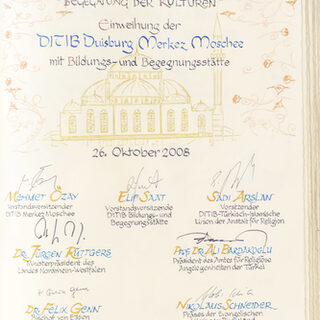 Begegnung der Kulturen
Einweihung der
DITIB Duisburg Merkez Moschee
mit Bildungs- und Begegnungsstätte
26. Oktober 2008
Mehmet Özay
Vorstandsvorsitzender
DITIB Merkez Moschee
Elif Saat
Vorstandsvorsitzende
DITIB Bildungs- und
Begegnungsstätte
Sadi Arslan
Vorsitzender
DITIB-Türkisch-Islamische
Union der Anstalt für
Religion
Dr. Jürgen Rüttgers
Ministerpräsident des
Landes Nordrhein-Westfalen
Prof. Dr. Ali Bardakoğlu
Präsident des Amtes für Religiöse
Angelegenheiten der Türkei
Dr. Felix Genn
Bischof von Essen
Nikolaus Schneider
Präses der Evangelischen